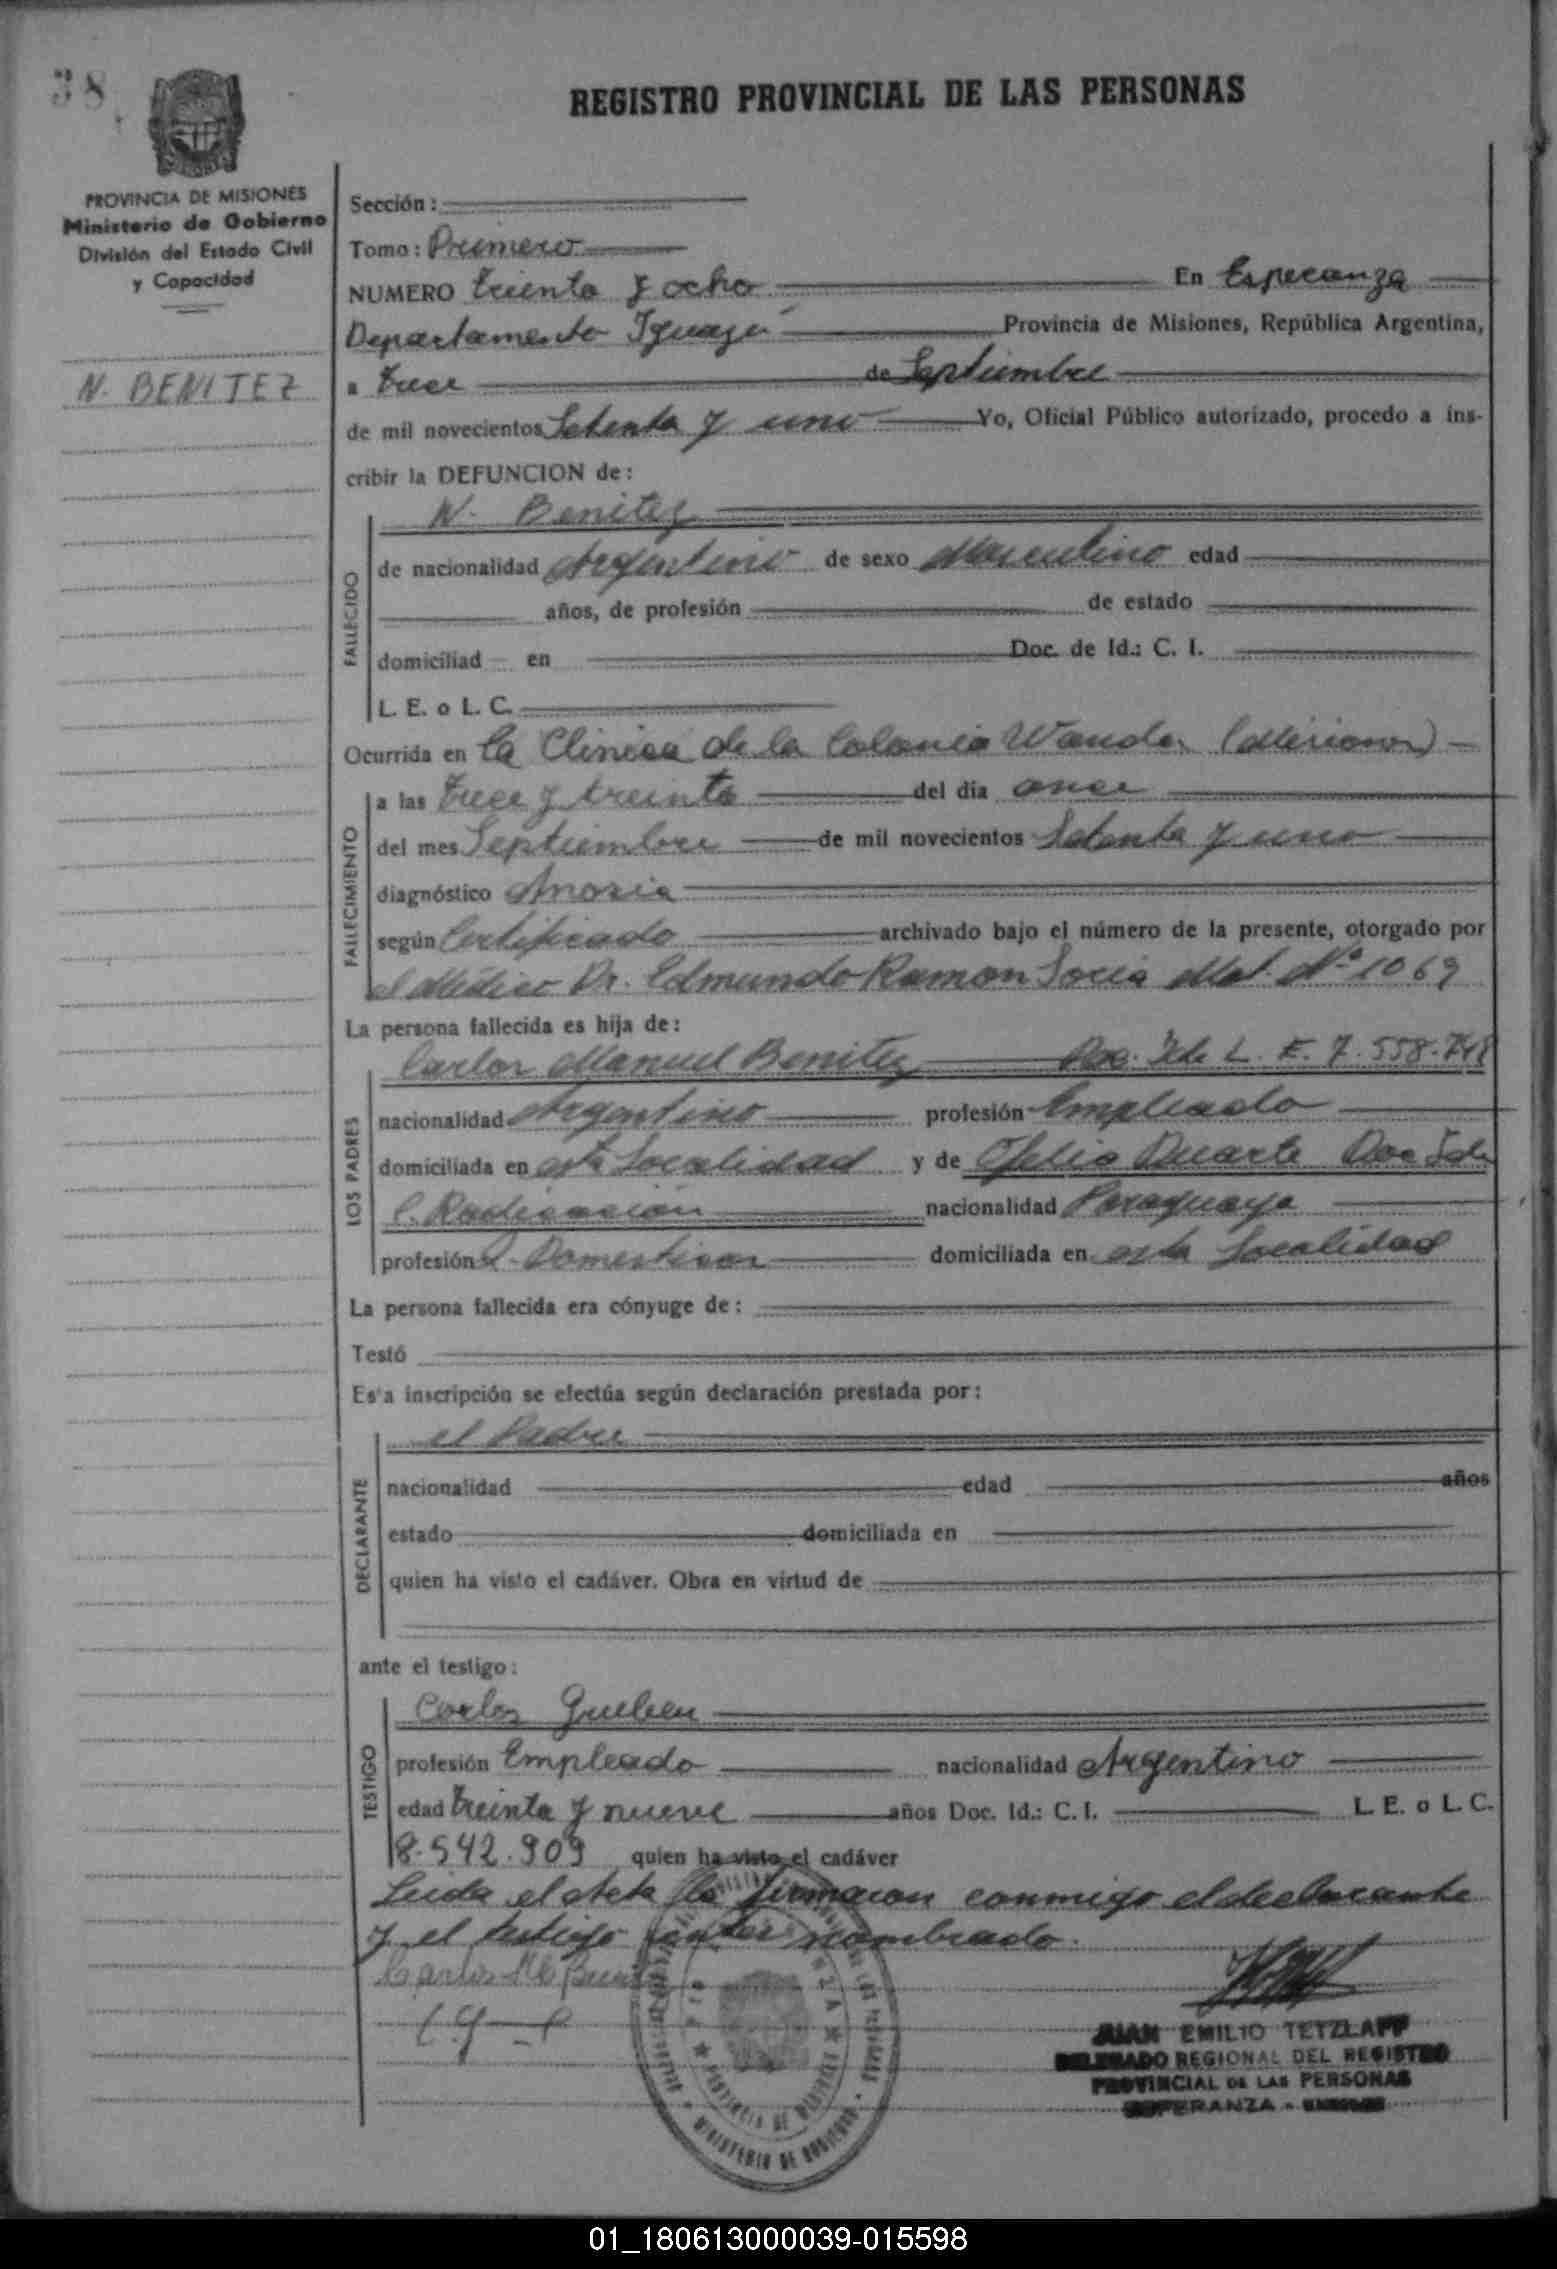 38
REGISTRO PROVINCIAL DE LAS PERSONAS
PROVINCIA DE MISIONES
Ministerio de Gobierno
División del Estado Civil
y Capacidad
N. BENITEZ
Sección:
Tomo: Primero
NUMERO treinta y ocho En Esperanza
Departamento Iguazú Provincia de Misiones, República Argentina,
a trece de Septiembre
de mil novecientos Setenta y uno Yo, Oficial Público autorizado, procedo a ins-
cribir la DEFUNCION de:
N. Benitez
FALLECIDO
de nacionalidad Argentino de sexo Masculino edad
años, de profesión de estado
domiciliad en Doc. de Id.: C. I.
L. E. o L. C.
Ocurrida en la Clinica de la Colonia Wanda (Misiones)
FALLECIMIENTO
a las trece y treinta del día once
del mes Septiembre de mil novecientos Setenta y uno
diagnóstico Anoxia
según Certificado archivado bajo el número de la presente, otorgado por
el Médico Dr. Edmundo Ramon Soria Mat. Nº 1069
La persona fallecida es hija de:
LOS PADRES
Carlos Manuel Benitez Doc. Ide L. E. 7.558.748
nacionalidad Argentino profesión Empleado
domiciliada en esta Localidad y de Ofelia Duarte Doc Ide
C. Radicación nacionalidad Paraguaya
profesión Q. Domesticos domiciliada en esta Localidad
La persona fallecida era cónyuge de:
Testó
Es'a inscripción se efectúa según declaración prestada por:
DECLARANTE
el Padre
nacionalidad edad años
estado domiciliada en
quien ha visto el cadáver. Obra en virtud de
ante el testigo:
TESTIGO
Carlos
profesión Empleado nacionalidad Argentino
edad treinta y nueve años Doc. Id.: C. I. L. E. o L. C.
8.542.909 quien ha visto el cadáver
Leida el Acta la firmaron conmigo el declarante
y el testigo antes nombrado.
Carlos M
JUAN EMILIO TETZLAFF
DELEGADO REGIONAL DEL REGISTRO
PROVINCIAL DE LAS PERSONAS
ESPERANZA - MISIONES
PROVINCIA DE MISIONES
MINISTERIO DE GOBIERNO
01_180613000039-015598